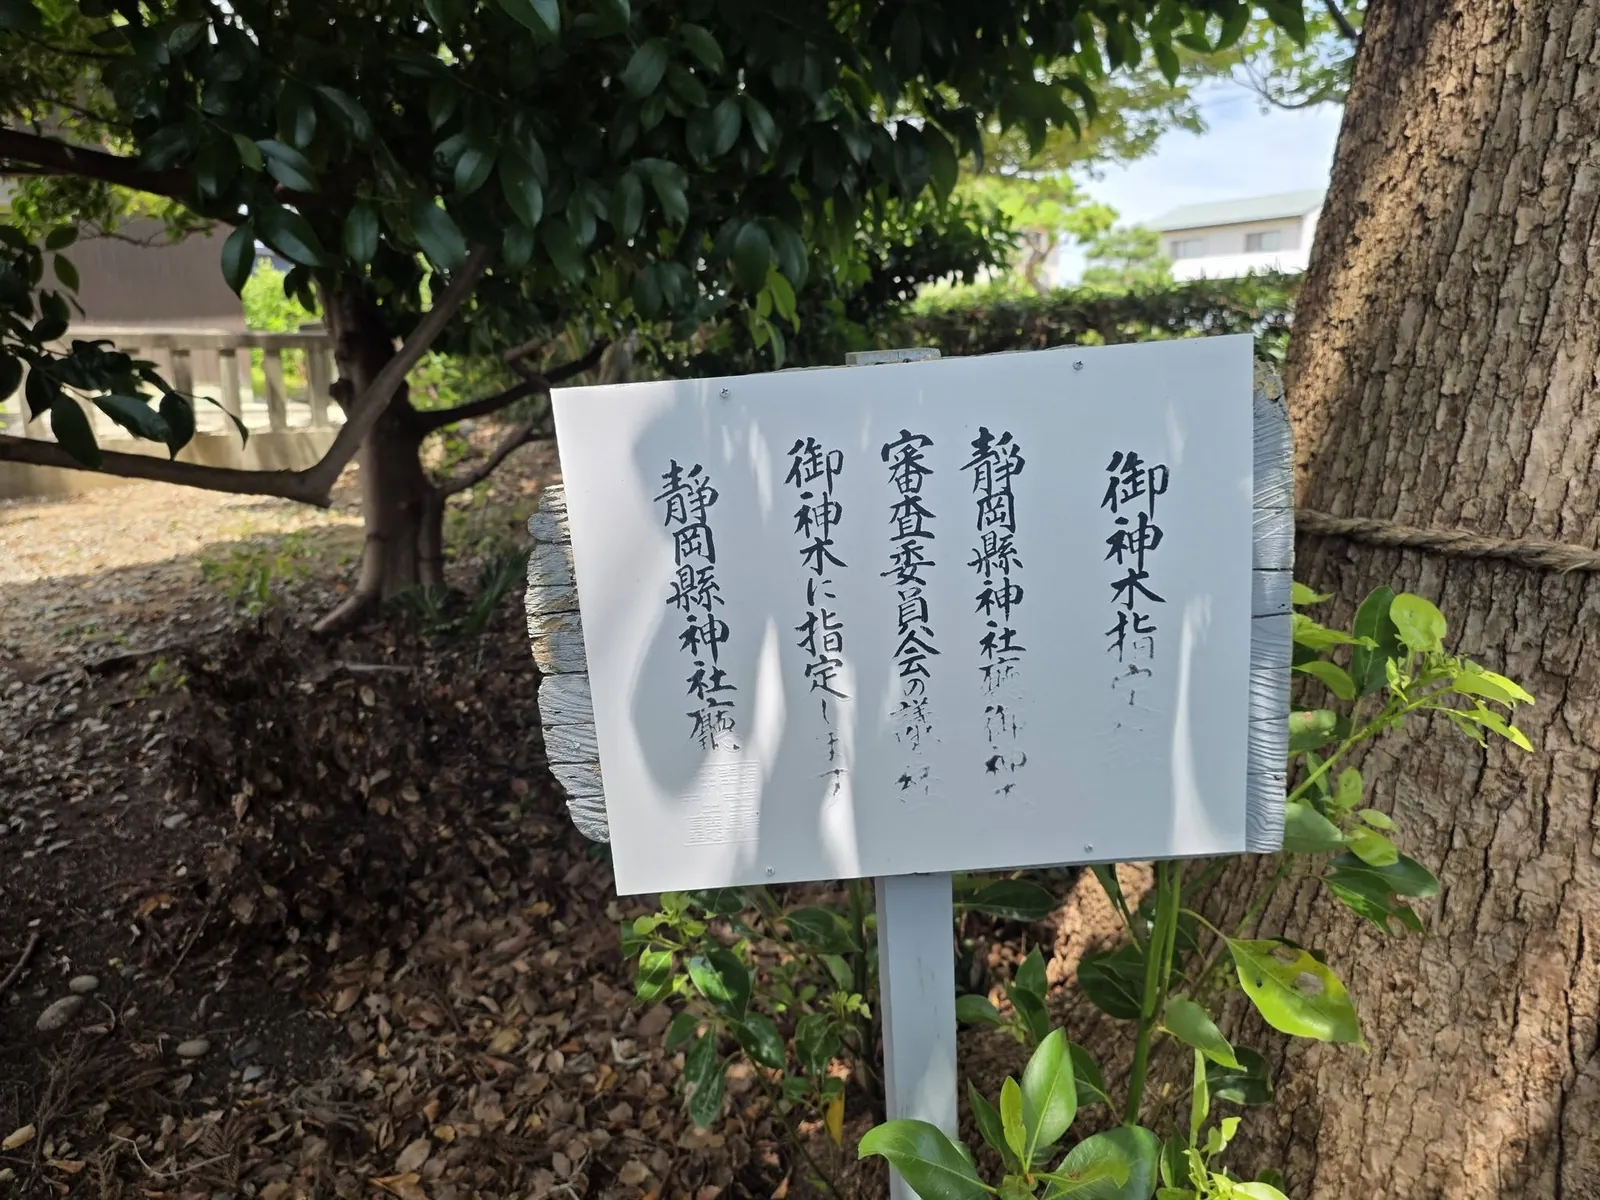 御神木指定
静岡縣神社廳御神木
審査委員会の議を経
御神木に指定します
静岡縣神社廳